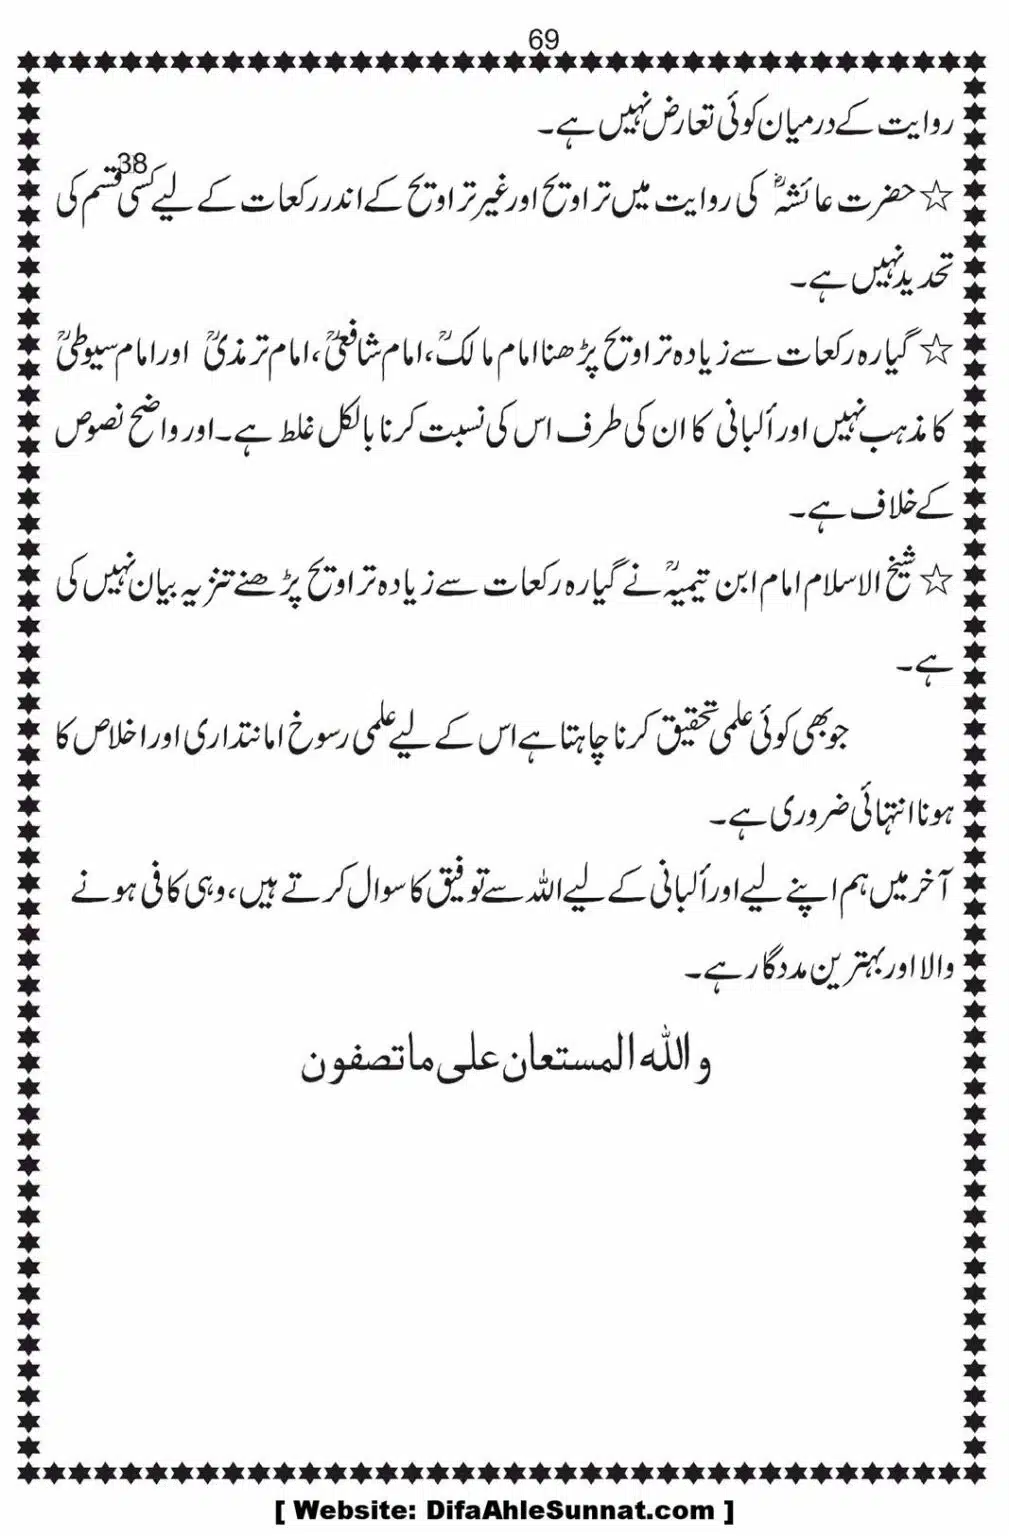 69
روایت کے درمیان کوئی تعارض نہیں ہے۔
38
☆ حضرت عائشہؓ کی روایت میں تراویح اور غیر تراویح کے اندر رکعات کے لیے کسی قسم کی
تحدید نہیں ہے۔
☆ گیارہ رکعات سے زیادہ تراویح پڑھنا امام مالکؒ، امام شافعیؒ، امام ترمذیؒ اور امام سیوطیؒ
کا مذہب نہیں اور ألبانی کا ان کی طرف اس کی نسبت کرنا بالکل غلط ہے۔ اور واضح نصوص
کے خلاف ہے۔
☆ شیخ الاسلام امام ابن تیمیہؒ نے گیارہ رکعات سے زیادہ تراویح پڑھنے تنزیہ بیان نہیں کی
ہے۔
جو بھی کوئی علمی تحقیق کرنا چاہتا ہے اس کے لیے علمی رسوخ امانتداری اور اخلاص کا
ہونا انتہائی ضروری ہے۔
آخر میں ہم اپنے لیے اور ألبانی کے لیے اللہ سے توفیق کا سوال کرتے ہیں، وہی کافی ہونے
والا اور بہترین مددگار ہے۔
واللہ المستعان علی ماتصفون
[ Website: DifaAhleSunnat.com ]